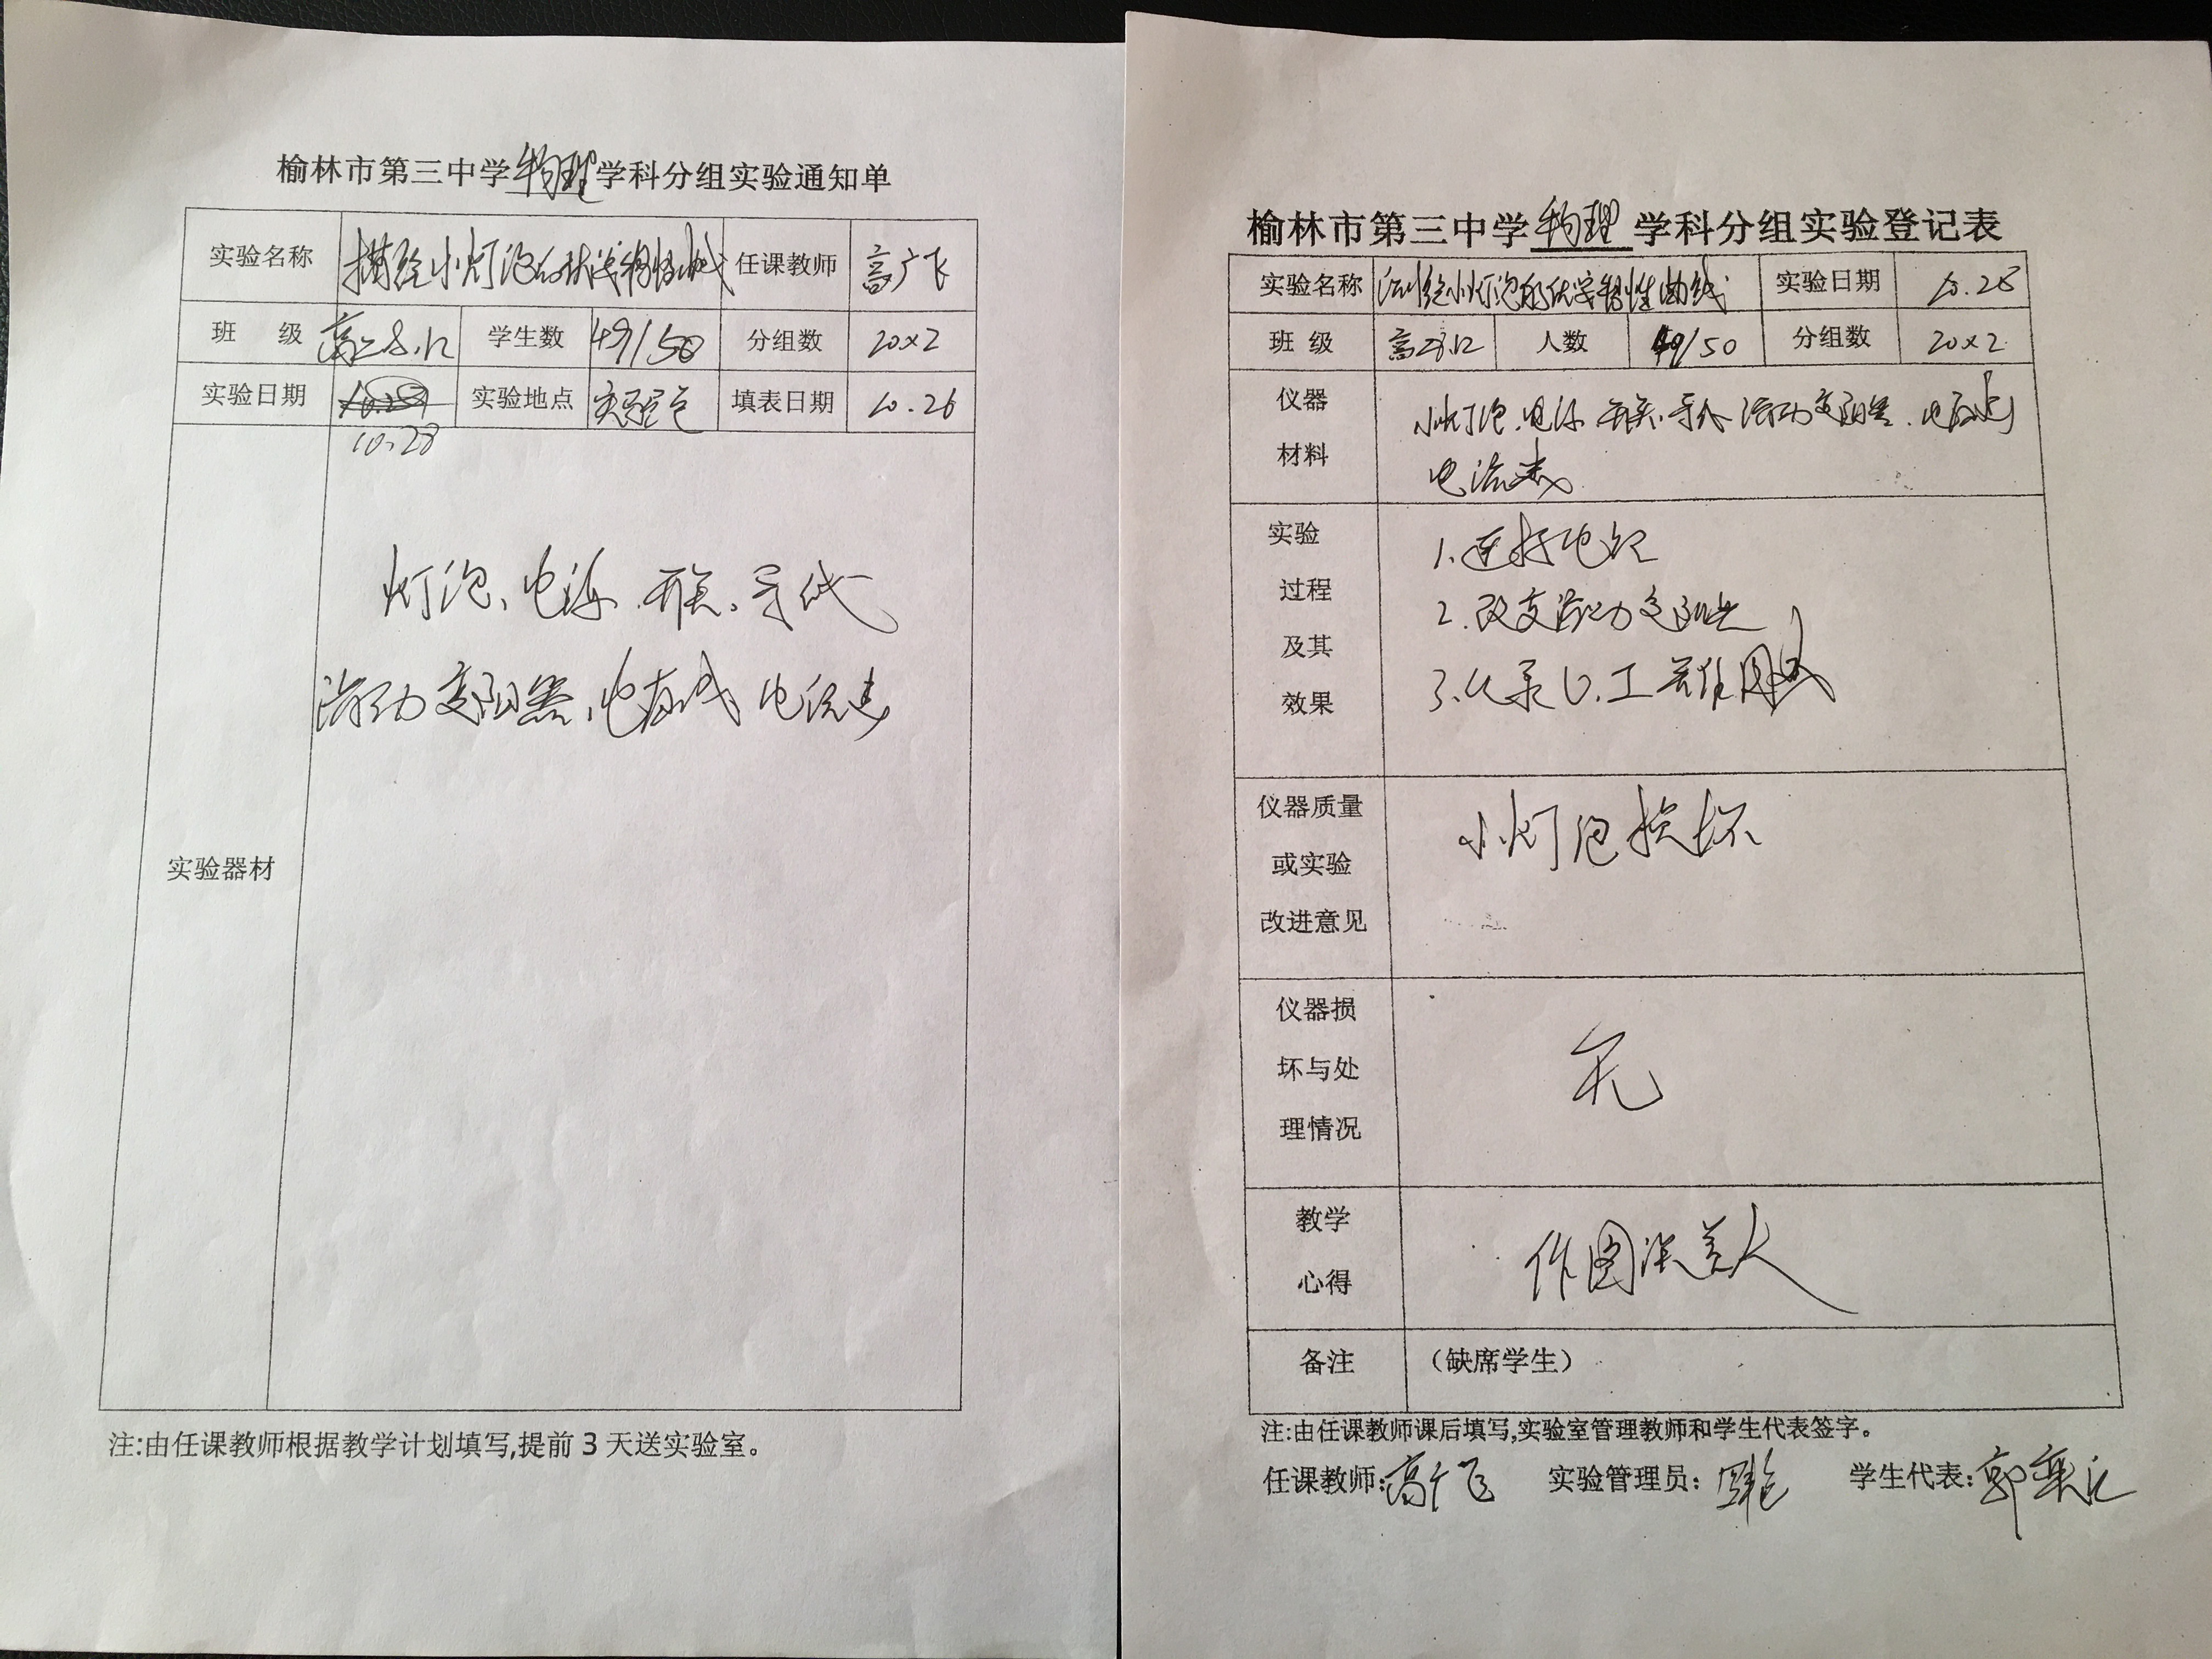 榆林市第三中学物理学科分组实验通知单
实验名称 描绘小灯泡的伏安特性曲线 任课教师 高广飞
班 级 高二8.12 学生数 49/50 分组数 20×2
实验日期 实验地点 实验室 填表日期 10.26
10.28
灯泡、电源、开关、导线
滑动变阻器、电压表 电流表
实验器材
注:由任课教师根据教学计划填写,提前 3 天送实验室。
榆林市第三中学物理学科分组实验登记表
实验名称 绘小灯泡的伏安特性曲线 实验日期 10.28
班 级 高二8.12 人数 49/50 分组数 20×2
仪器
材料
小灯泡、电源、开关、导线、滑动变阻器、电压表
电流表
实验
过程
及其
效果
1.连接电路
2.改变滑动变阻器
3.记录U、I 并作图
仪器质量
或实验
改进意见
小灯泡损坏
仪器损
坏与处
理情况
无
教学
心得
作图误差大
备注 （缺席学生）
注:由任课教师课后填写,实验室管理教师和学生代表签字。
任课教师:高广飞 实验管理员: 学生代表:郭